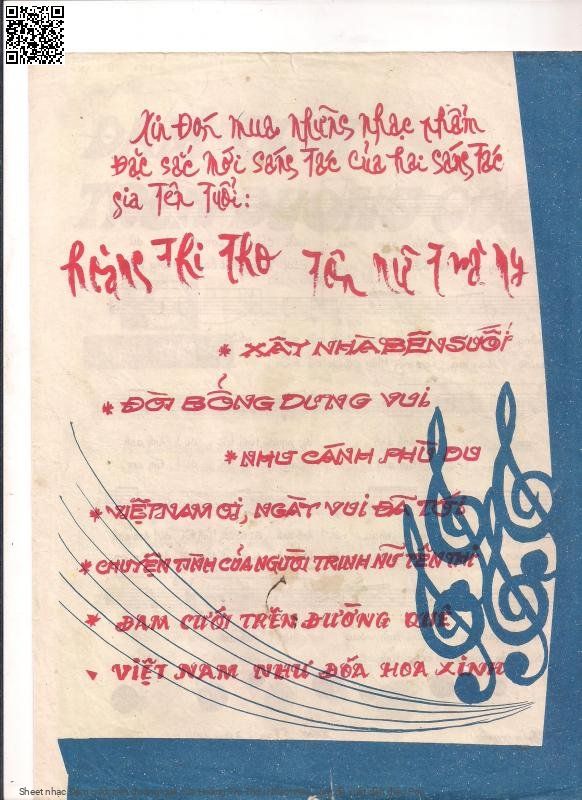 Xin Đón mua những nhạc phẩm
Đặc sắc mới sáng tác của hai sáng tác
gia tên tuổi:
hoàng Thi Thơ Tôn nữ Trà My
* XÂY NHÀ BÊN SUỐI
* ĐỜI BỔNG DƯNG VUI
* NHƯ CÁNH PHÙ DU
* VIỆT NAM ƠI, NGÀY VUI ĐÃ TỚI
* CHUYỆN TÌNH CỦA NGƯỜI TRINH NỮ TÊN THI
* ĐÁM CƯỚI TRÊN ĐƯỜNG QUÊ
VIỆT NAM NHƯ ĐÓA HOA XINH
Sheet nhạc Đám cưới trên đường quê